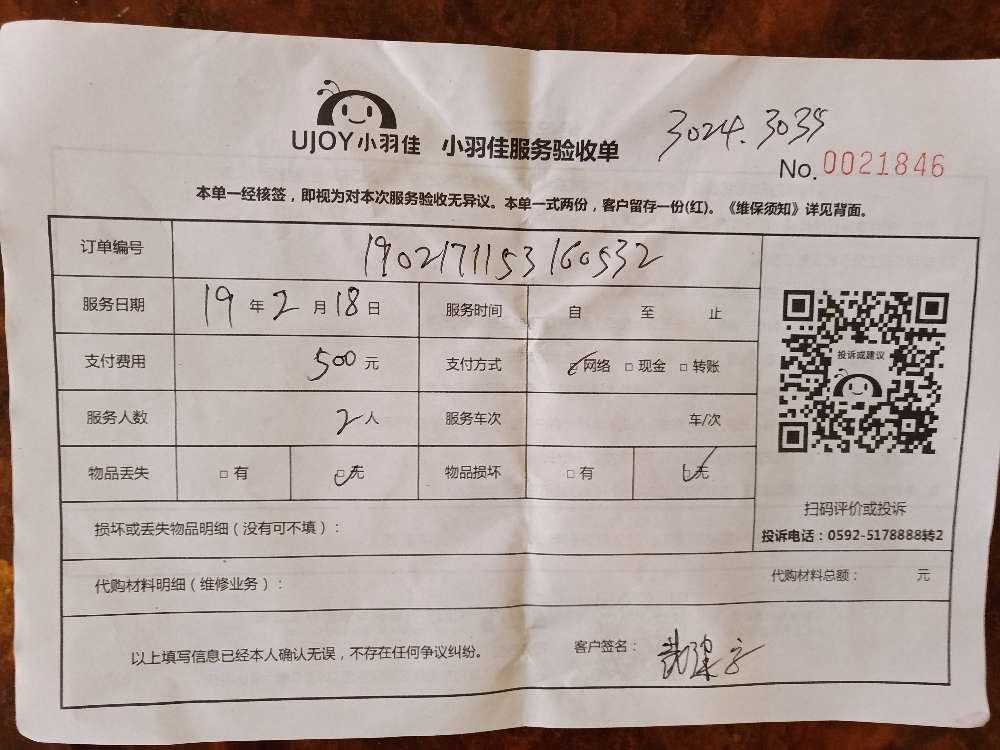 UJOY小羽佳 小羽佳服务验收单
3024. 3035
No. 0021846
本单一经核签，即视为对本次服务验收无异议。本单一式两份，客户留存一份(红)。《维保须知》详见背面。
订单编号 1902171153160532
服务日期 19 年 2 月 18 日 服务时间 自 至 止
投诉或建议
支付费用 500 元 支付方式 网络 □ 现金 □ 转账
服务人数 2 人 服务车次 车/次
物品丢失 □ 有 □ 无 物品损坏 □ 有 □ 无
扫码评价或投诉
损坏或丢失物品明细（没有可不填）：
投诉电话：0592-5178888转2
代购材料明细（维修业务）： 代购材料总额： 元
以上填写信息已经本人确认无误，不存在任何争议纠纷。 客户签名：